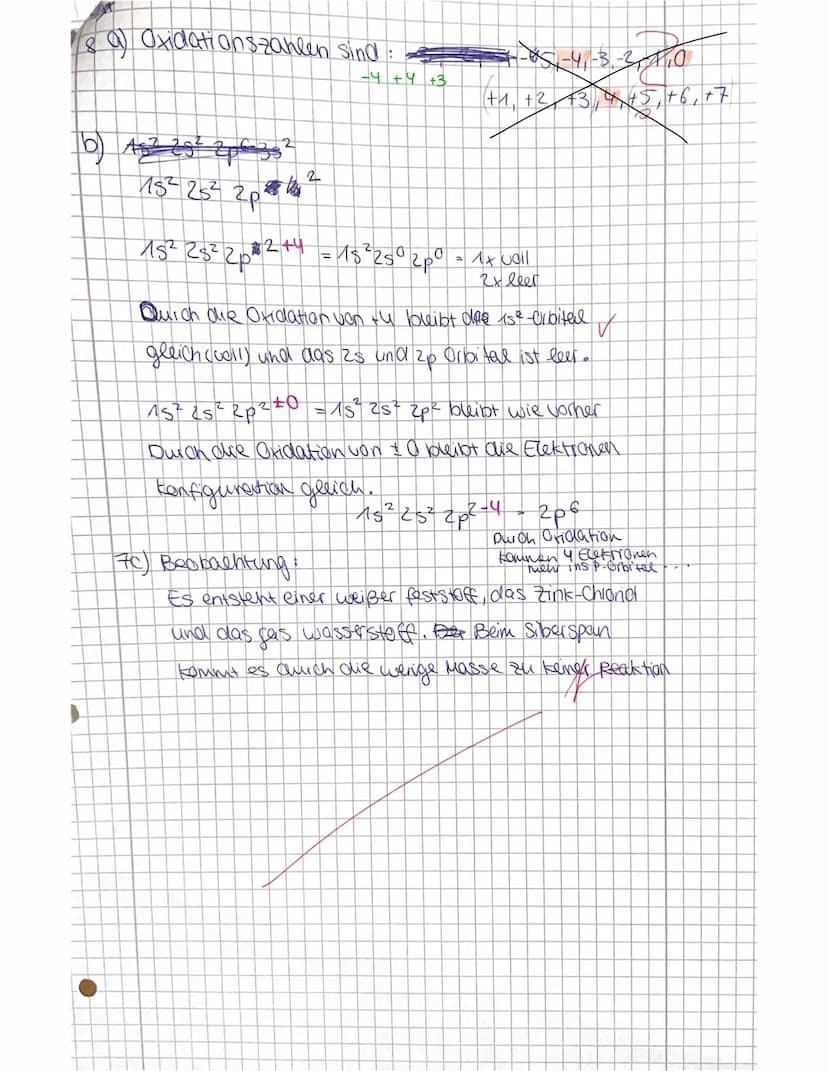 8 a) Oxidationszahlen sind : -5, -4, -3, -2, -1, 0
-4 +4 +3
(+1, +2, +3), 4, +5, +6, +7
b) 1s² 2s² 2p⁶ 3s²
1s² 2s² 2p²
1s² 2s² 2p² +4 = 1s² 2s⁰ 2p⁰ = 1x voll
2x leer
Durch die Oxidation von +4 bleibt das 1s²-Orbital ✓
gleich (voll) und das 2s und 2p Orbital ist leer.
1s² 2s² 2p² ±0 = 1s² 2s² 2p² bleibt wie vorher
Durch die Oxidation von ± 0 bleibt die Elektronen
konfiguration gleich.
1s² 2s² 2p² -4 = 2p⁶
Durch Oxidation
kommen 4 Elektronen
mehr ins p-Orbital...
7c) Beobachtung:
Es entsteht einer weißer feststoff, das Zink-Chlorid
und das gas wasserstoff. Beim Siberspan
kommt es durch die wenige Masse zu keiner Reaktion